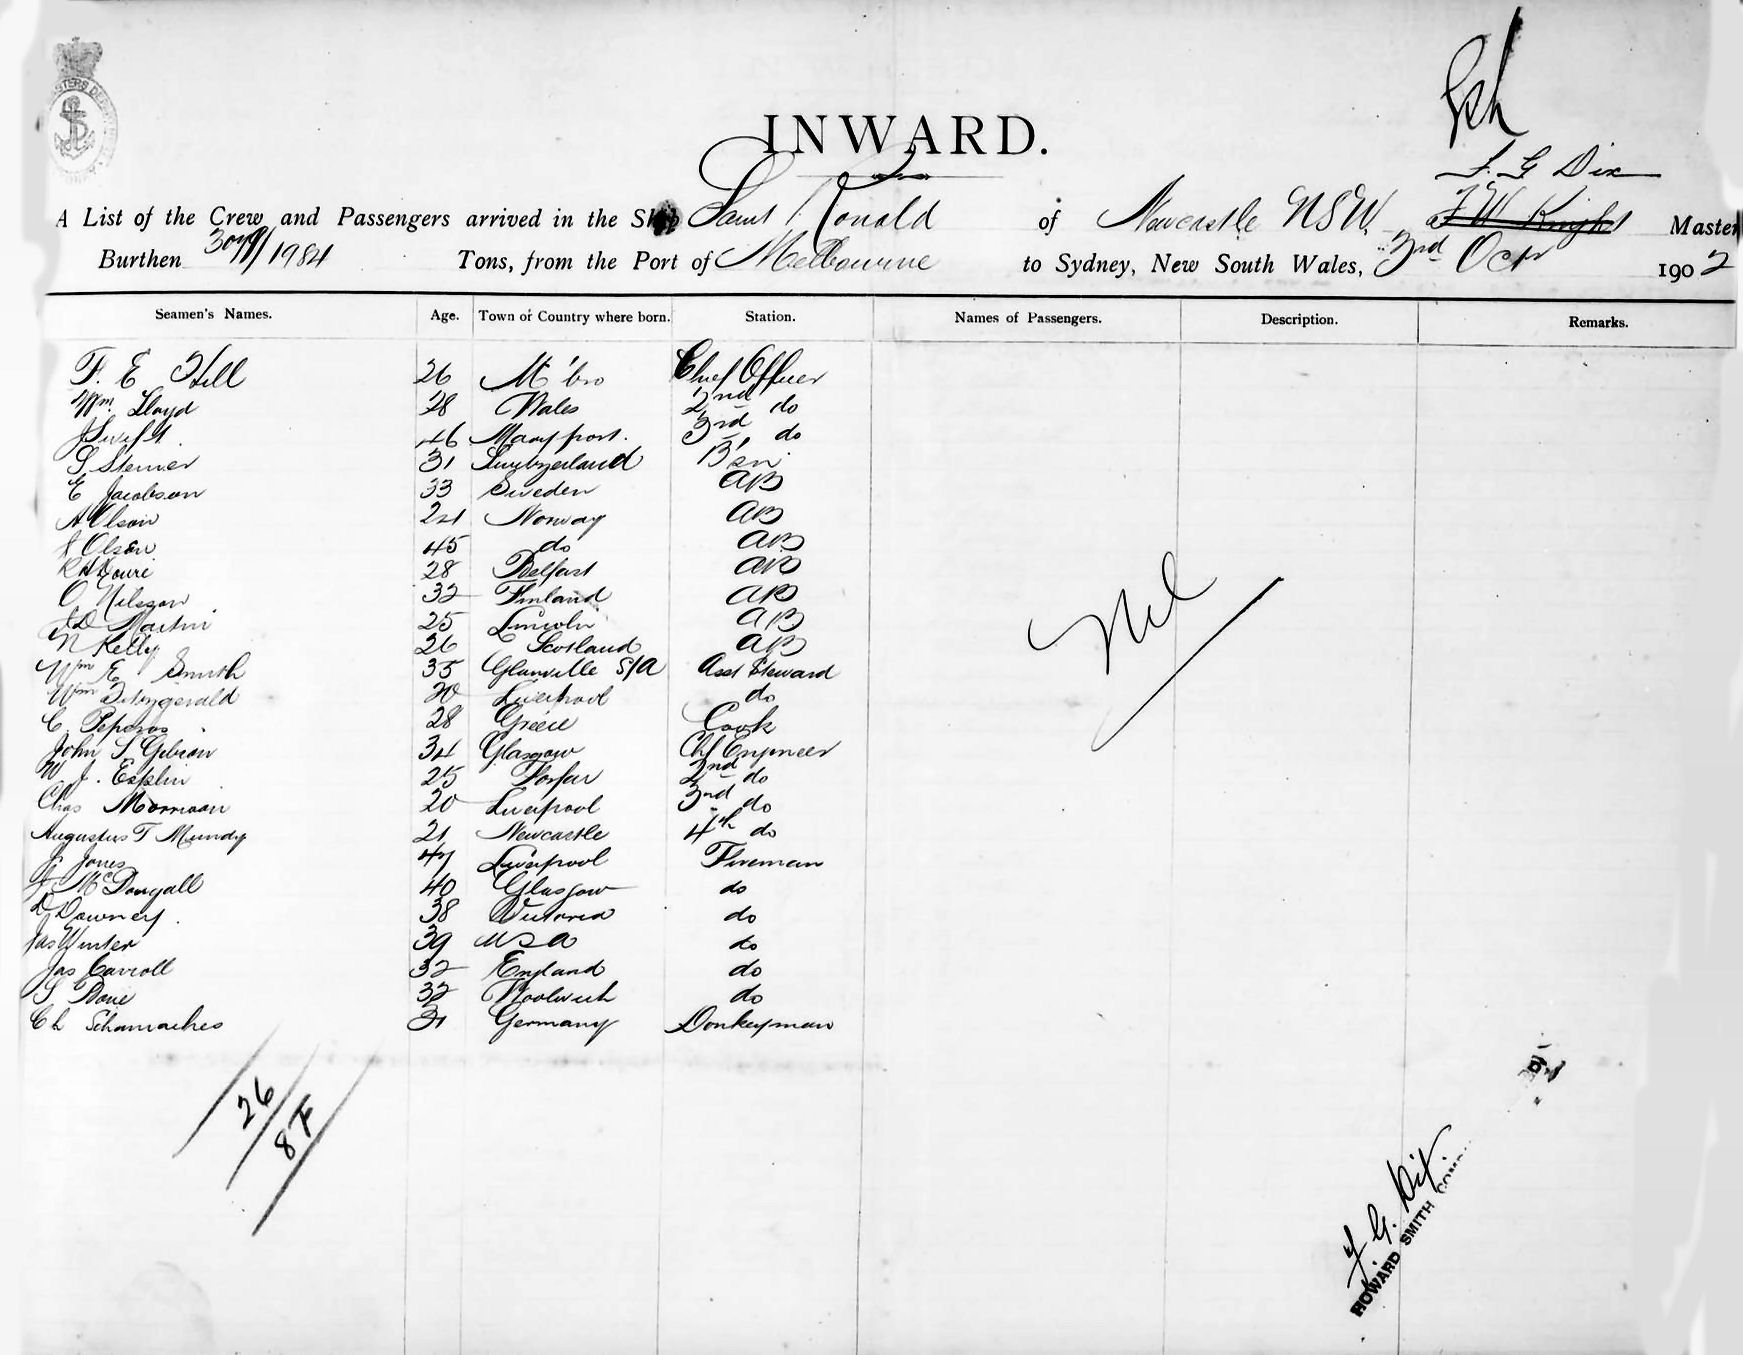 INWARD.
F. G Dix
A List of the Crew and Passengers arrived in the Ship Saint Ronald of Newcastle NSW. F W Knight Master
Burthen 1984 Tons, from the Port of Melbourne to Sydney, New South Wales, 3rd Octr 1902
Seamen's Names. Age. Town or Country where born. Station. Names of Passengers. Description. Remarks.
F. E Hill 26 M'bro Chief Officer
Wm. Lloyd 28 Wales 2nd do
J Swift 46 Maryport. 3rd do
S Steiner 31 Switzerland B'sn
E Jacobson 33 Sweden AB
A Olson 24 Norway AB
Olsen 45 do AB
28 Belfast AB
O Nilsson 32 Finland AB
Martin 25 Lincoln AB
N Kelly 26 Scotland AB
Wm E Smith 35 Glanville S/A Asst Steward
Wm Fitzgerald 20 Liverpool do
C. Peporos 28 Greece Cook
John S. Gibson 34 Glasgow Chf Engineer
W J. Esplin 25 Forfar 2nd do
Chas Morrison 20 Liverpool 3rd do
Augustus T Mundy 21 Newcastle 4th do
Jones 47 Liverpool Fireman
J McDougall 40 Glasgow do
D Downey. 38 Victoria do
Jas Winter 39 USA do
Jas Carroll 32 England do
S Bone 32 Woolwich do
Ch 31 Germany Donkeyman
Nil
26
8F
F. G. Dix
HOWARD SMITH